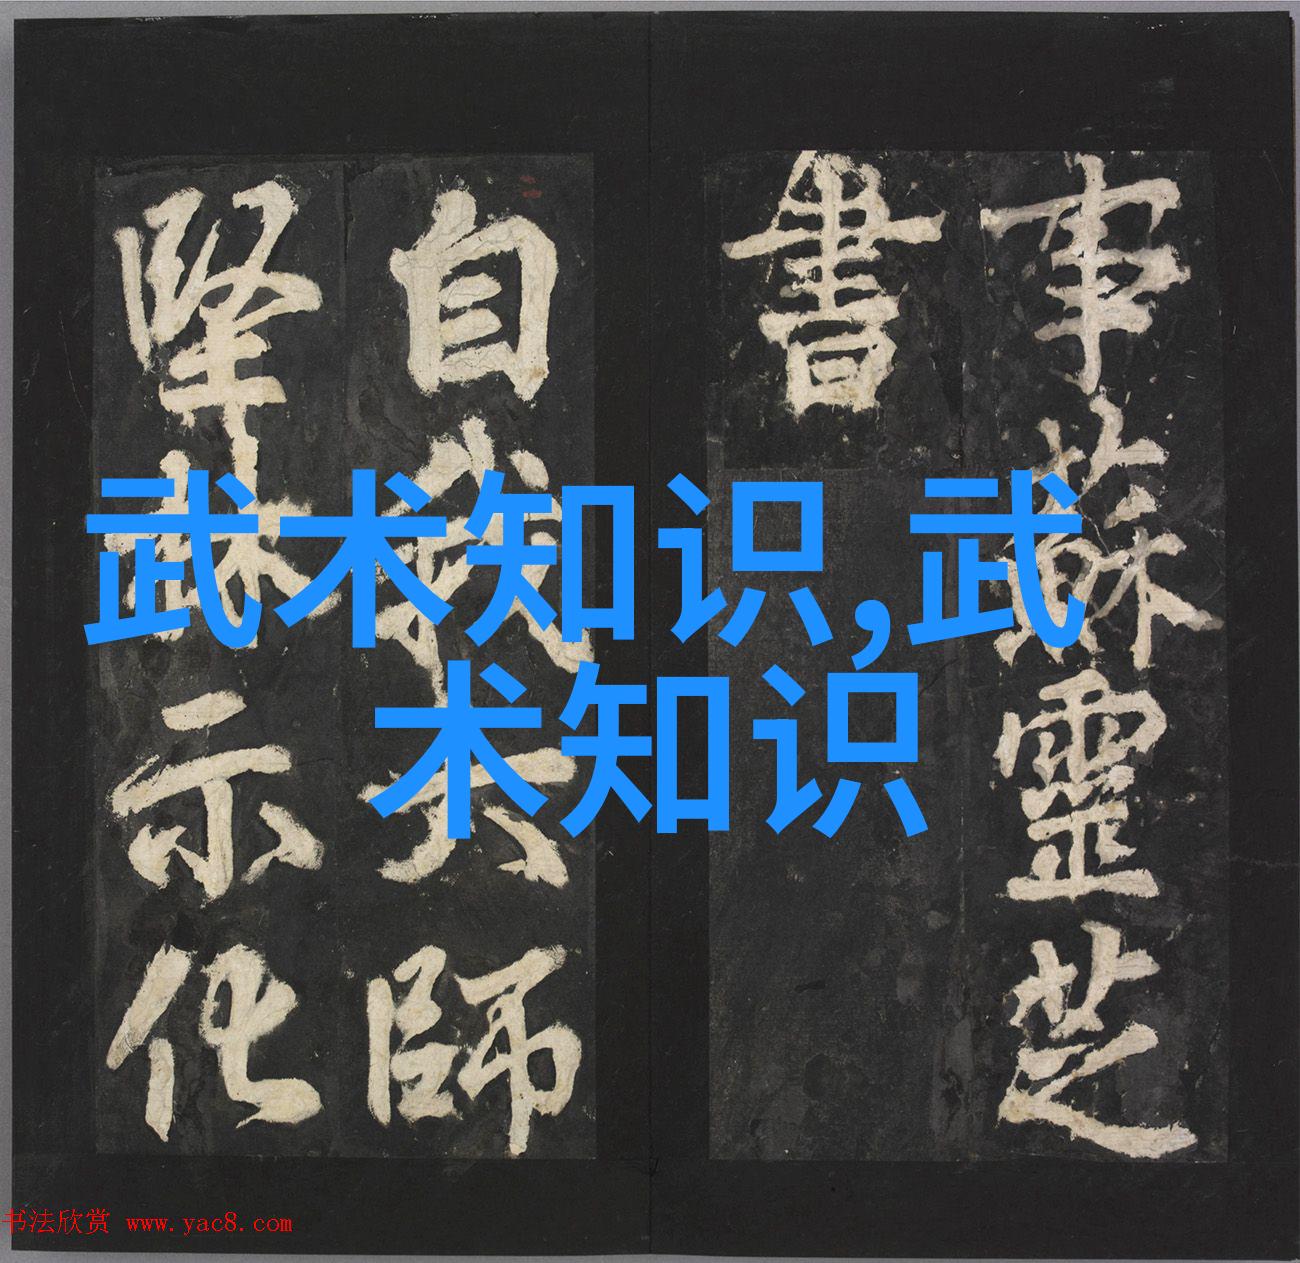 事蘇靈芝
書
自我大師
堅林示化
武术知识,武
术知识
书法欣赏 www.yac8.com